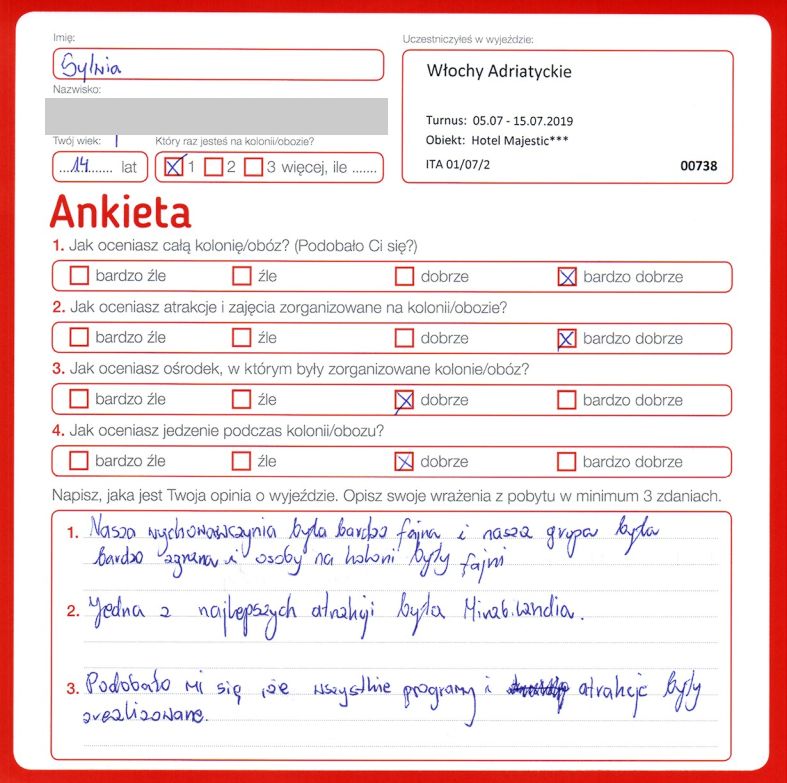 Imię:
Sylwia
Nazwisko:
Twój wiek:
Który raz jesteś na kolonii/obozie?
....14....... lat
1 2 3 więcej, ile .......
Uczestniczyłeś w wyjeździe:
Włochy Adriatyckie
Turnus: 05.07 - 15.07.2019
Obiekt: Hotel Majestic***
ITA 01/07/2 00738
Ankieta
1. Jak oceniasz całą kolonię/obóz? (Podobało Ci się?)
bardzo źle źle dobrze bardzo dobrze
2. Jak oceniasz atrakcje i zajęcia zorganizowane na kolonii/obozie?
bardzo źle źle dobrze bardzo dobrze
3. Jak oceniasz ośrodek, w którym były zorganizowane kolonie/obóz?
bardzo źle źle dobrze bardzo dobrze
4. Jak oceniasz jedzenie podczas kolonii/obozu?
bardzo źle źle dobrze bardzo dobrze
Napisz, jaka jest Twoja opinia o wyjeździe. Opisz swoje wrażenia z pobytu w minimum 3 zdaniach.
1. Nasza wychowawczynia była bardzo fajna i nasza grupa była
bardzo zgrana i osoby na koloni były fajni
2. Jedna z najlepszych atrakcji była Mirabilandia.
3. Podobało mi się, że wszystkie programy i atrakcje były
zrealizowane.